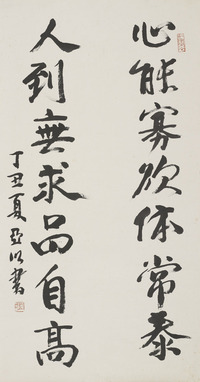 心能寡欲体常泰
人到無求品自高
丁丑夏亚明書